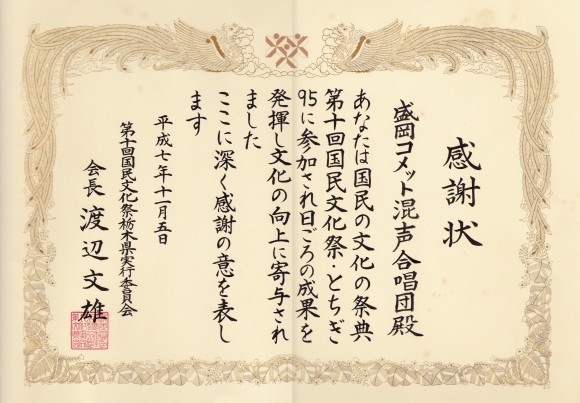 感謝状
盛岡コメット混声合唱団殿
あなたは国民の文化の祭典
第十回国民文化祭・とちぎ
95に参加され日ごろの成果を
発揮し文化の向上に寄与され
ました
ここに深く感謝の意を表し
ます
平成七年十一月五日
第十回国民文化祭栃木県実行委員会
会長 渡辺文雄